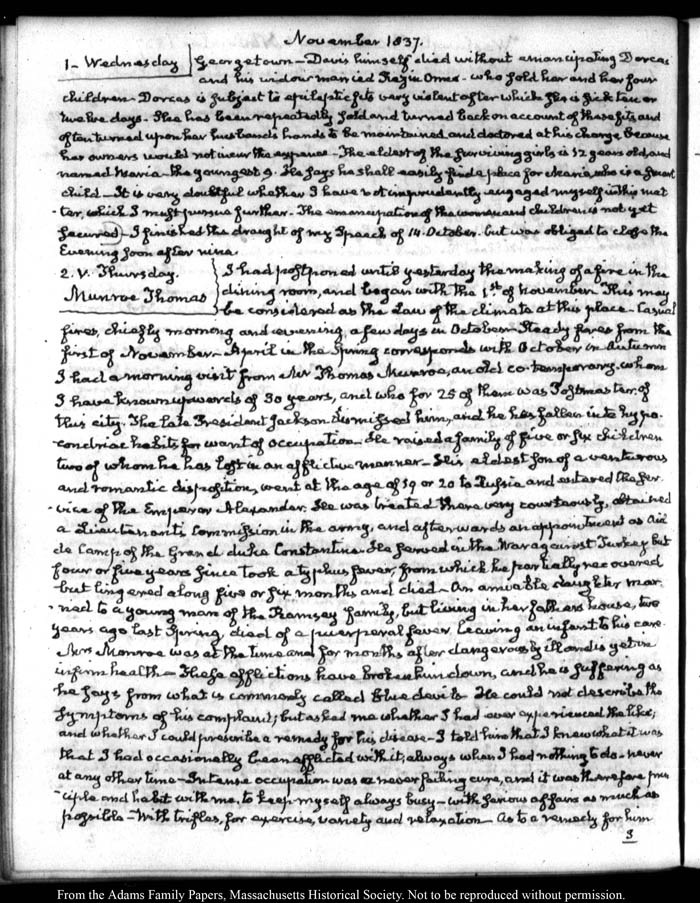 November 1837.
1 - Wednesday Georgetown - Davis himself died without emancipating Dorcas
and his widow married Rezin Orme - who sold her and her four
children - Dorcas is subject to epileptic fits very violent after which she is sick ten or
twelve days - She has been repeatedly sold and turned back on account of these fits, and
often turned upon her husband's hands to be maintained and doctored at his charge because
her owners would not incur the expence - The eldest of the surviving girls is 12 years old, and
named Maria - the youngest 9. He says he shall easily find a place for Maria who is a smart
child - It is very doubtful whether I have not imprudently engaged myself in this mat
-ter, which I must pursue further - The emancipation of the woman and children is not yet
secured - I finished the draught of my Speech of 14. October. but was obliged to close the
Evening soon after nine.
2. V. Thursday. I had postponed until yesterday the making of a fire in the
Munroe Thomas dining room, and began with the 1st of November. This may
be considered as the Law of the climate at this place - Casual
fires, chiefly morning and evening, a few days in October - Steady fires from the
first of November - April in the Spring corresponds with October in Autumn
I had a morning visit from Mr Thomas Munroe, an old co-temporary, whom
I have known upwards of 30 years, and who for 25 of them was Postmaster, of
this city. The late President Jackson dismissed him, and he has fallen into hypo-
-condriac habits for want of occupation - He raised a family of five or six children
two of whom he has lost in an afflictive manner - His eldest son of a venturous
and romantic disposition, went at the age of 19 or 20 to Russia and entered the ser
-vice of the Emperor Alexander. He was treated there very courteously, obtained
a Lieutenant's Commission in the army, and afterwards an appointment as Aid
de Camp of the Grand duke Constantine. He served in the War against Turkey but
four or five years since took a typhus fever, from which he partially recovered
but lingered along five or six months and died - An amiable daughter mar
-ried to a young man of the Ramsay family, but living in her fathers house, two
years ago last Spring, died of a puerperal fever. leaving an infant to his care.
Mrs Munroe was at the time and for months after dangerously ill and is yet in
infirm health - These afflictions have broken him down, and he is suffering as
he says from what is commonly called Blue devils - He could not describe the
symptoms of his complaint; but asked me whether I had ever experienced the like;
and whether I could prescribe a remedy for his disease - I told him that I knew what it was
that I had occasionally been afflicted with it; always when I had nothing to do - never
at any other time - Intense occupation was a never failing cure, and it was therefore prin
-ciple and habit with me, to keep myself always busy - with serious affairs as much as
possible - With trifles, for exercise, variety and relaxation - As to a remedy for him
From the Adams Family Papers, Massachusetts Historical Society. Not to be reproduced without permission.